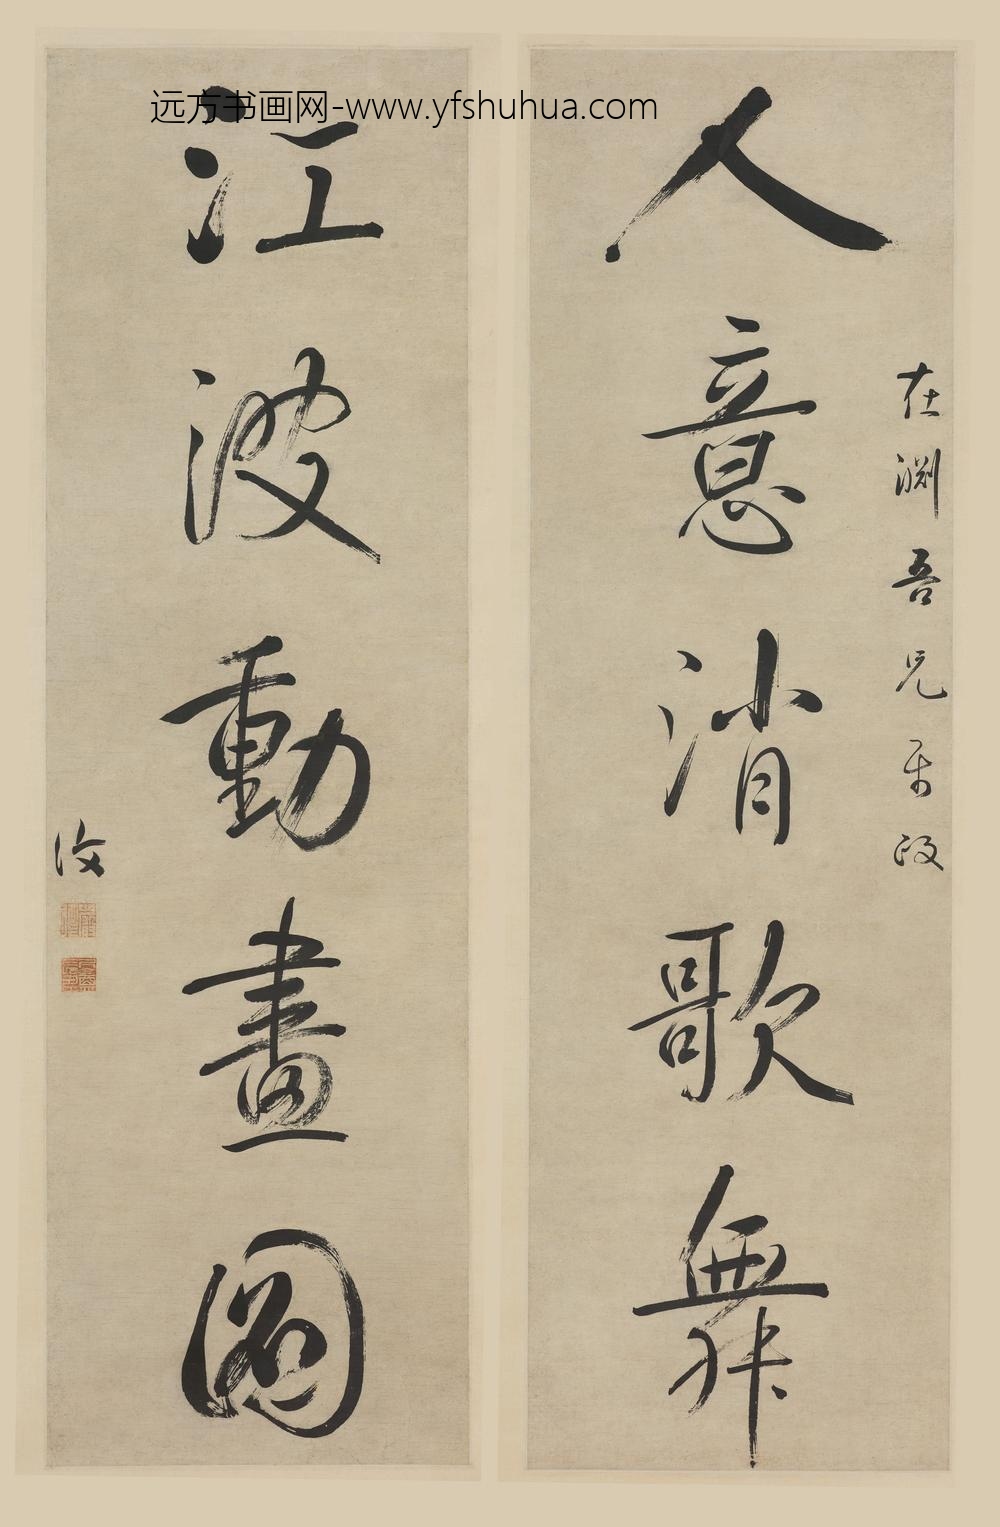 远方书画网-www.yfshuhua.com
在渊吾兄
人意消歌舞
江波動畫圖